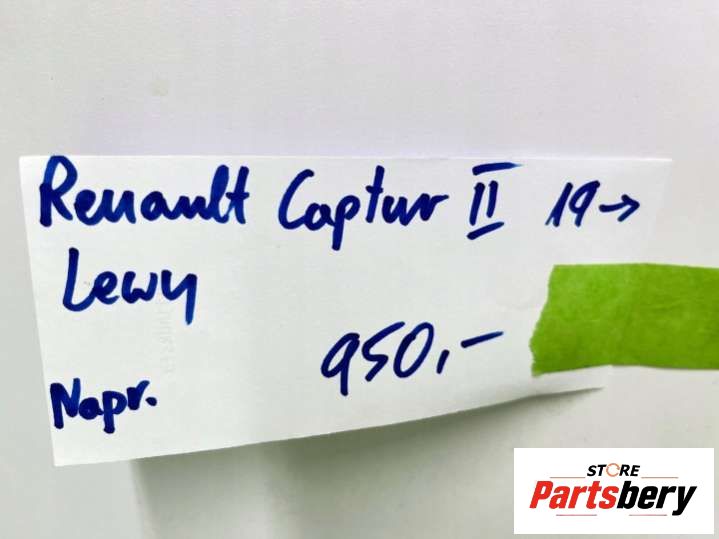 Renault Captur II 19→
Lewy
950,-
Napr.
STORE
Partsbery